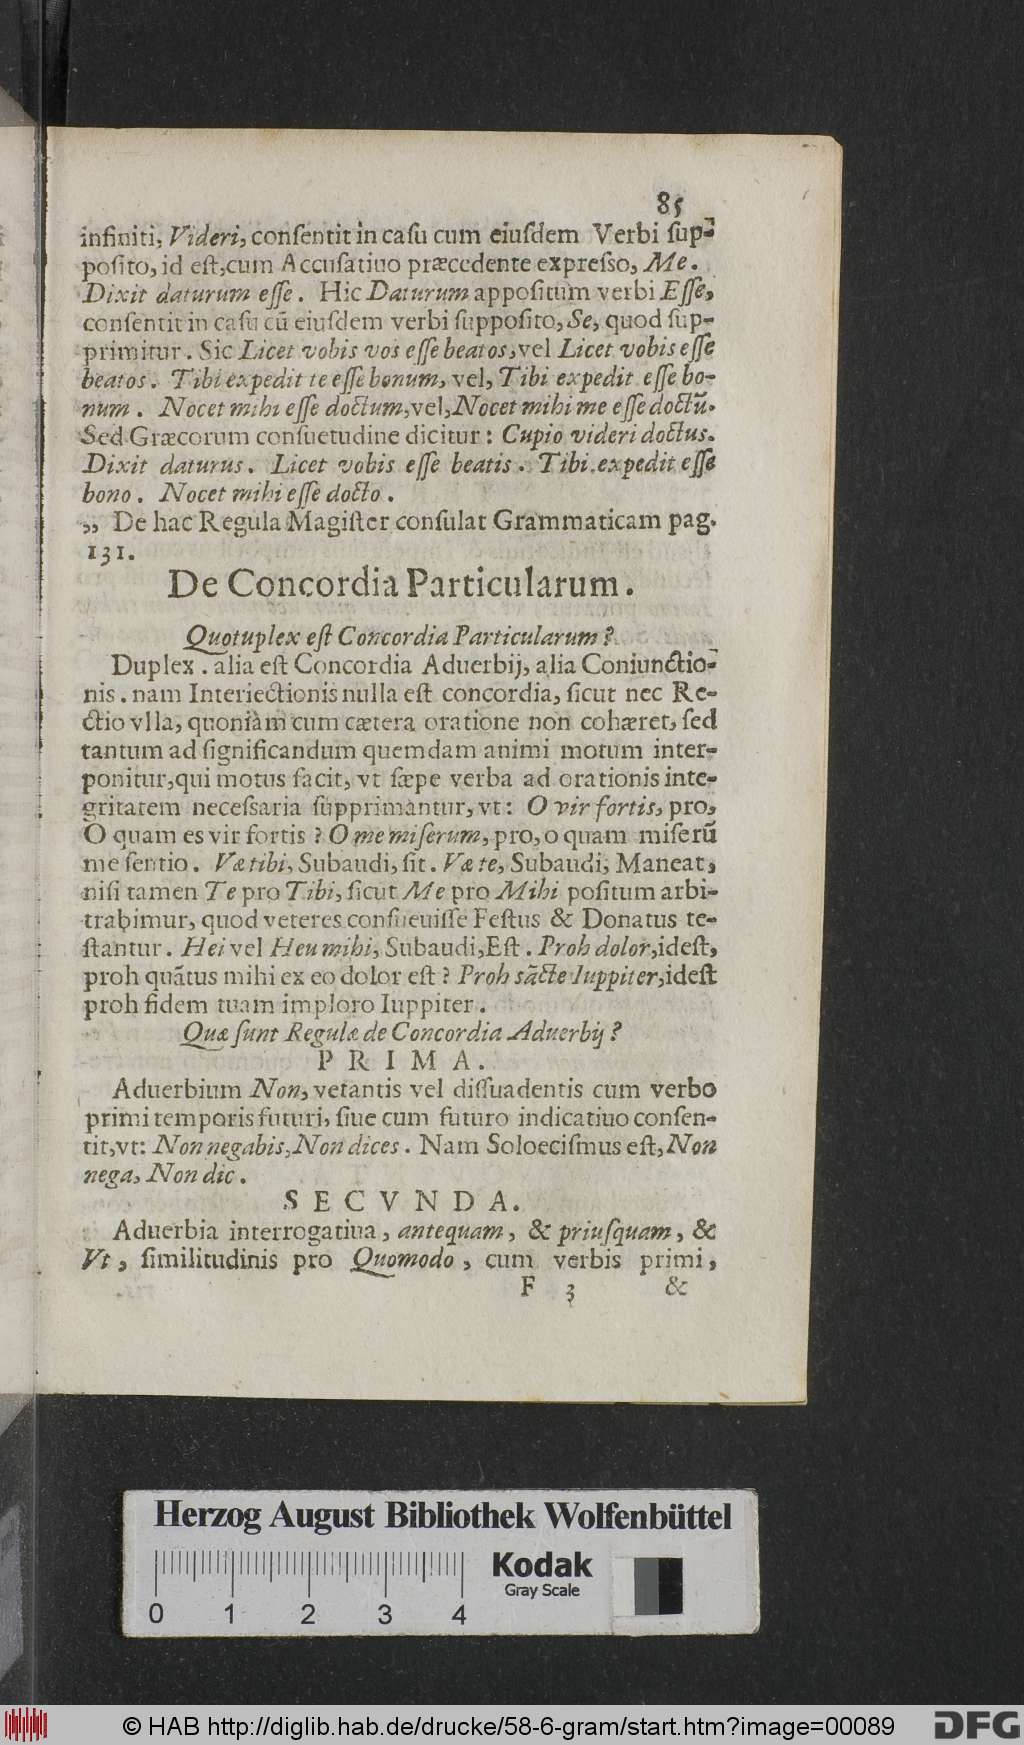 85
infiniti, Videri, conſentit in caſu cum eiuſdem Verbi ſup-
poſito, id eſt, cum Accuſatiuo præcedente expreſso, Me.
Dixit daturum eſſe. Hic Daturum appoſitum verbi Eſſe,
conſentit in caſu cū eiuſdem verbi ſuppoſito, Se, quod ſup-
primitur. Sic Licet vobis vos eſſe beatos, vel Licet vobis eſſe
beatos. Tibi expedit te eſſe bonum, vel, Tibi expedit eſſe bo-
num. Nocet mihi eſſe doctum, vel, Nocet mihi me eſſe doctū.
Sed Græcorum conſuetudine dicitur: Cupio videri doctus.
Dixit daturus. Licet vobis eſſe beatis. Tibi expedit eſſe
bono. Nocet mihi eſſe docto.
„ De hac Regula Magiſter conſulat Grammaticam pag.
131.
De Concordia Particularum.
Quotuplex eſt Concordia Particularum?
Duplex. alia eſt Concordia Aduerbij, alia Coniunctio-
nis. nam Interiectionis nulla eſt concordia, ſicut nec Re-
ctio vlla, quoniàm cum cætera oratione non cohæret, ſed
tantum ad ſignificandum quemdam animi motum inter-
ponitur, qui motus facit, vt ſæpe verba ad orationis inte-
gritatem neceſsaria ſupprimantur, vt: O vir fortis, pro,
O quam es vir fortis? O me miſerum, pro, o quam miſerū
me ſentio. Væ tibi, Subaudi, ſit. Væ te, Subaudi, Maneat,
niſi tamen Te pro Tibi, ſicut Me pro Mihi poſitum arbi-
trabimur, quod veteres conſueuiſſe Feſtus & Donatus te-
ſtantur. Hei vel Heu mihi, Subaudi, Eſt. Proh dolor, ideſt,
proh quātus mihi ex eo dolor eſt? Proh sācte Iuppiter, ideſt
proh fidem tuam imploro Iuppiter.
Quæ ſunt Regulæ de Concordia Aduerbij?
PRIMA.
Aduerbium Non, vetantis vel diſſuadentis cum verbo
primi temporis futuri, ſiue cum futuro indicatiuo conſen-
tit, vt: Non negabis, Non dices. Nam Soloeciſmus eſt, Non
nega, Non dic.
SECVNDA.
Aduerbia interrogatiua, antequam, & priuſquam, &
Vt, ſimilitudinis pro Quomodo, cum verbis primi,
F 3 &
Herzog August Bibliothek Wolfenbüttel
Kodak
Gray Scale
0 1 2 3 4
© HAB http://diglib.hab.de/drucke/58-6-gram/start.htm?image=00089
DFG